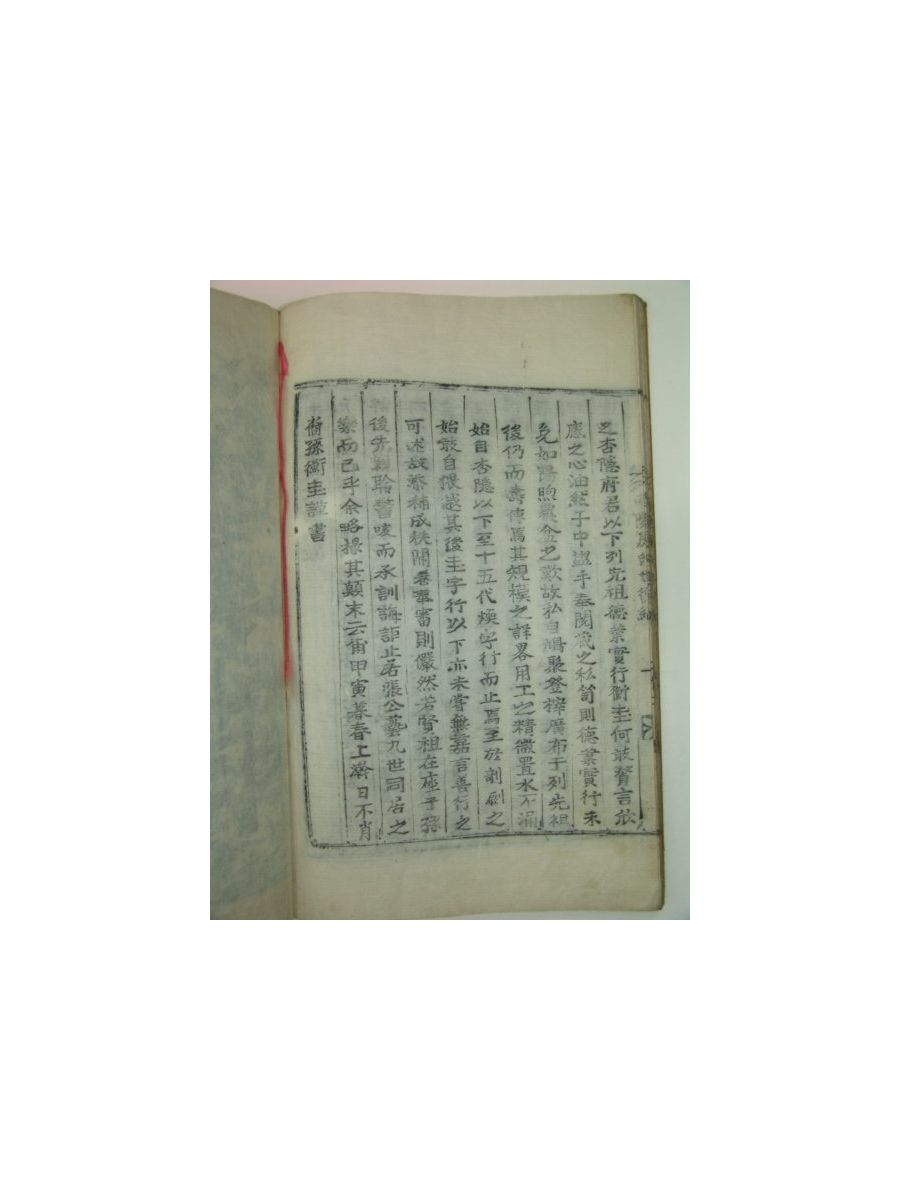 之杏隱府君以下列先祖德業實行衝圭何敢贅言於
應之心油然于中盥手奉閱藏之私笥則德業實行未
免如陽煦山金之歎故私自鳩聚登梓廣布于列先祖
後仍而壽傳焉其規模之詳畧用工之精微置水不漏
始自杏隱以下至十五代煥字行而止焉至於剞劂之
始敢自猥越其後圭字行以下亦未嘗無嘉言善行之
可述故參補成秩開卷奉審則儼然若賢祖在座子孫
後先聆謦咳而承訓誨詎止若張公藝九世同居之
樂而已乎余略掇其顛末云爾甲寅暮春上澣日不肖
裔孫衝圭謹書